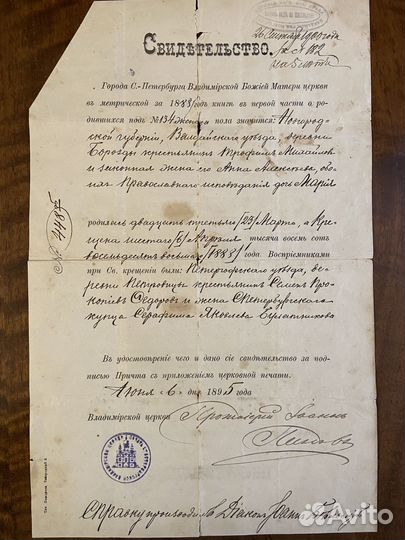 26 Сентября 1900 года
за № 182
Свидѣтельство.
Города С.-Петербурга Владимірской Божіей Матери церкви
въ метрической за 1888 годъ книгѣ въ первой части о ро-
дившихся подъ № 134 женска пола значится: Новгород-
ской губерніи, Валдайскаго уѣзда, деревни
крестьянинъ Трофимъ Михайловъ
и законная жена его Анна Алексѣева, оба
Православнаго исповѣданія дочь Марія
родилась двадцать третьяго /23/ Марта, а кре-
щена шестаго /6/ Апрѣля тысяча восемь сотъ
восемьдесятъ восьмаго /1888/ года. Воспріемниками
при Св. крещеніи были: Петергофскаго уѣзда, де-
ревни Петровцы крестьянинъ Семенъ Про-
копіевъ Ѳедоровъ и жена С.Петербургскаго
купца Серафима Яковлева
Въ удостовѣреніе чего и дано сіе свидѣтельство за под-
писью Причта съ приложеніемъ церковной печати.
Іюня 6 дня 1895 года
Владимірской церкви Протоіерей Іоаннъ
№ 4487
Справку производилъ Діаконъ Іоаннъ
Avito